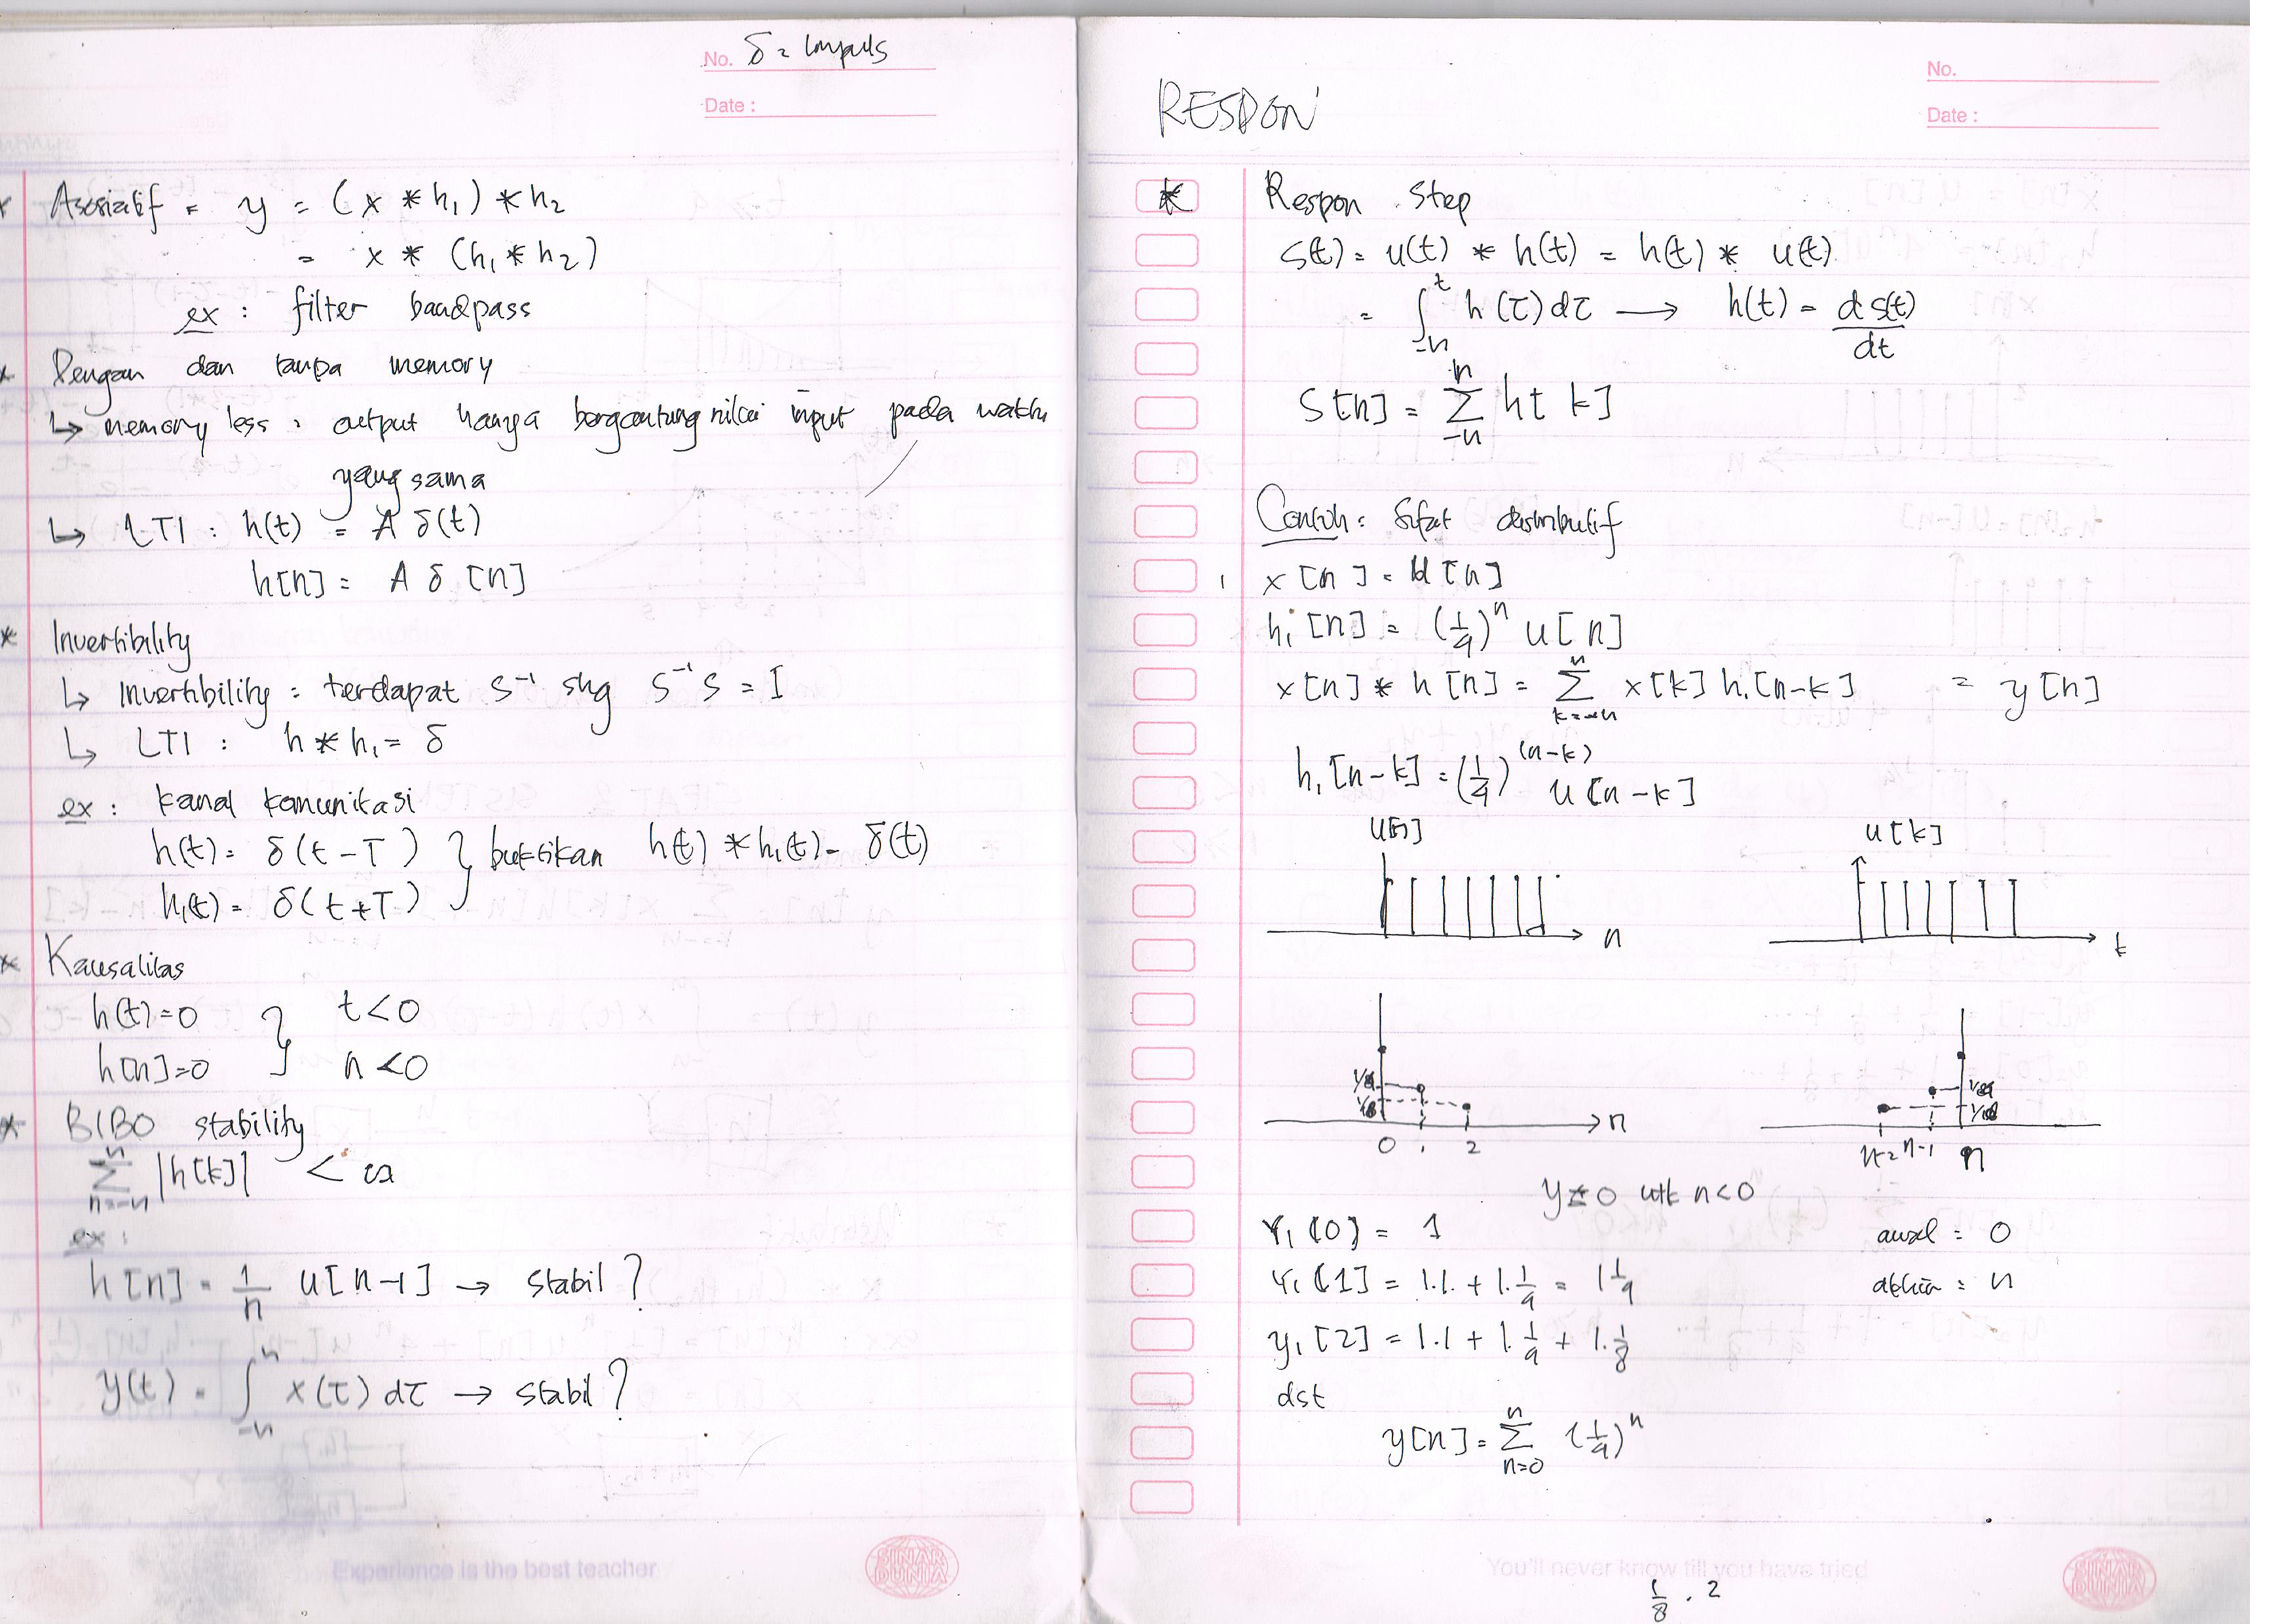 No. δ = Impuls
Date :
* Asosiatif = y = (x * h₁) * h₂
= x * (h₁ * h₂)
ex : filter bandpass
* Dengan dan tanpa memory
↳ memory less : output hanya bergantung nilai input pada waktu
yang sama
↳ LTI : h(t) = A δ(t)
h[n] = A δ [n]
* Invertibility
↳ Invertibility : terdapat S⁻¹ shg S⁻¹ S = I
↳ LTI : h * h₁ = δ
ex : kanal komunikasi
h(t) = δ(t-T) } buktikan h(t) * h₁(t) = δ(t)
h₁(t) = δ(t+T)
* Kausalitas
h(t)=0 } t<0
h[n]=0 n<0
* BIBO stability
∑ |h[k]| < ∞
n=-∞
ex :
h[n] = 1/n u[n-1] → stabil ?
y(t) = ∫ x(τ) dτ → stabil ?
Experience is the best teacher
SINAR DUNIA
No.
Date :
RESPON
* Respon Step
S(t) = u(t) * h(t) = h(t) * u(t)
= ∫ h(τ) dτ → h(t) = d s(t)/dt
S[n] = ∑ h[k]
Contoh : Sifat distributif
x[n] = u[n]
h₁[n] = (1/4)ⁿ u[n]
x[n] * h[n] = ∑ x[k] h₁[n-k] = y[n]
h₁[n-k] = (1/4)^(n-k) u[n-k]
u[n] u[k]
n k
1/4 1/4
n
0 1 2 n-2 n-1 n
y=0 utk n<0
Y₁[0] = 1 awal = 0
Y₁[1] = 1.1. + 1.1/4 = 1 1/4 akhir = n
y₁[2] = 1.1 + 1.1/4 + 1.1/8
dst
y[n] = ∑ (1/4)ⁿ
n=0
You'll never know till you have tried
SINAR DUNIA
1/8 . 2